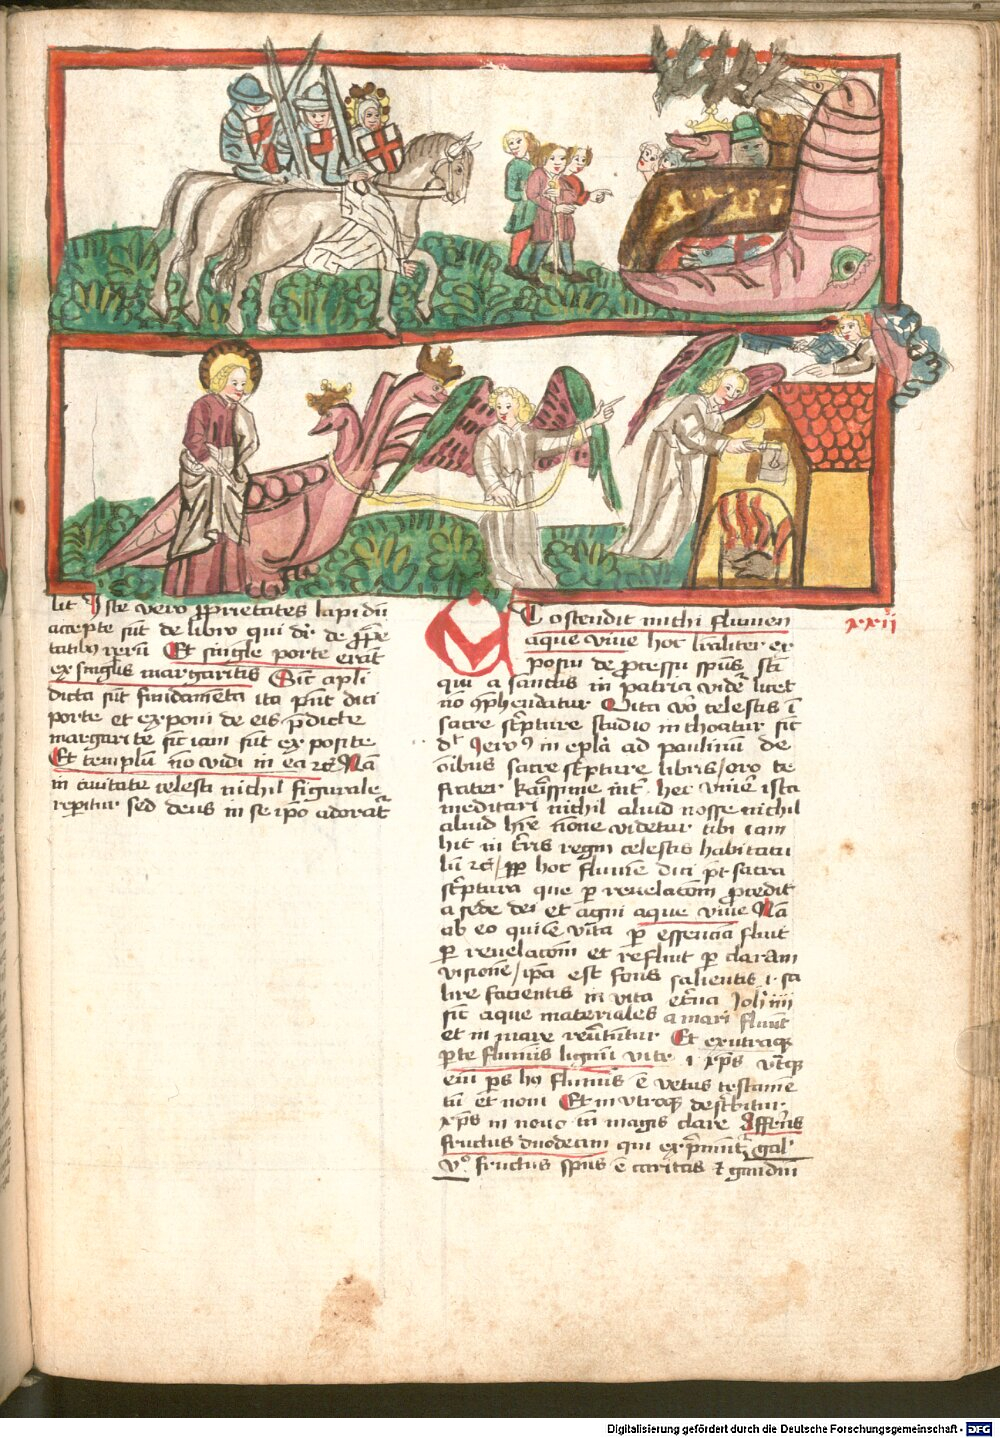 lit Iste vero ꝓprietates lapidū
accepte sūt de libro qui dr̄ de ꝓpͤe
tatibꝰ rerū Et singule porte erāt
ex singl̓is margaritis Sic apli
dicta sūt fundamēta ita pn̄t dici
porte et exponi de eis p̄dicte
margarite sic iam sūt exposite
Et templū nō vidi in ea rc̄ Nā
in ciuitate celesti nichil figurale
reperitur sed deus in se ip̄o adoratᷣ
Et ostendit michi flumen
aque viue hoc lr̄aliter ex
posui de ꝓcessu spūs sc̄i
qui a sanctis in patria vider̄ licet
nō ꝯp̄hendatur Vita vō celestis ī
sacre sc̓pture studio inchoatur sic
dt̄ Ieroꝰ in ep̄la ad paulinū de
oībus sacre sc̓pture libris / oro te
frater karissime int̓ hec viuē ista
meditari nichil aliud nosse nichil
aliud hr̄e nōne videtur tibi iam
hic in t̓ris regni celestis habitatu
lū rc̄ / ꝓp̄ hoc fluuiē dici pt̄ sacra
sc̓ptura que ꝑ reuelac̄om ꝓcedit
a sede dei et agni aque viue Nā
ab eo qui ē vita ꝑ essencia fluit
ꝑ reuelac̄om et refluit ꝑ claram
visionē / ip̄a est fons salientis .i. sa
lire facientis in vitā et̓na Ioh̓ iiii
sic aque materiales a mari fluūt
et in mare reu̓tūtur Et ex utraqꝫ
ꝑte fluminis lignū vite .i. xp̄s vtͣqꝫ
eni ꝑs hꝰ flumīs ē vetus testamē
tū et noui Et in vtroqꝫ desc̓bitur
xp̄s in nouo tn̄ magis clare Affer̄es
fructus duodecim qui exp̄muntᷣ gal̓
vͦ fructus spūs ē caritas ⁊ gaudiū
xxii
Digitalisierung gefördert durch die Deutsche Forschungsgemeinschaft - DFG